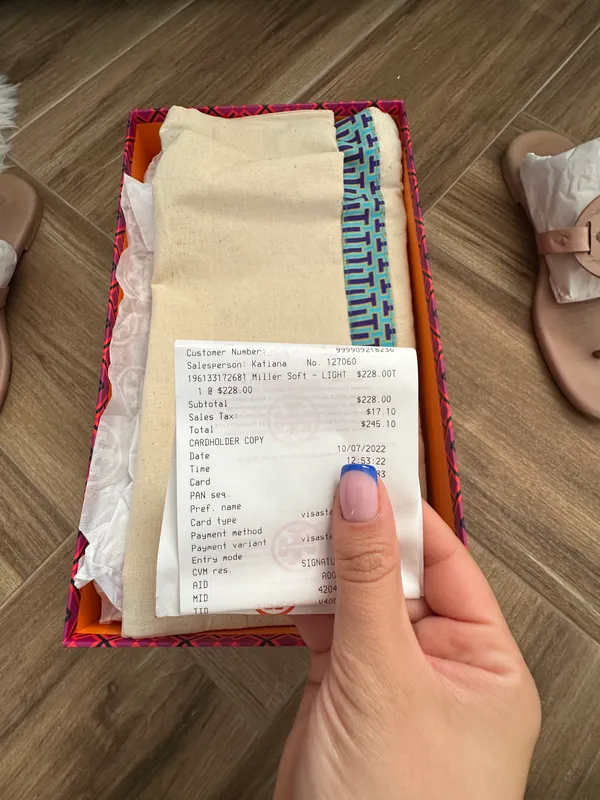 Customer Number: 999909218236
Salesperson: Katiana No. 127060
196133172681 Miller Soft - LIGHT $228.00T
1 @ $228.00
Subtotal $228.00
Sales Tax: $17.10
Total $245.10
CARDHOLDER COPY
Date 10/07/2022
Time 12:53:22
Card 83
PAN seq.
Pref. name
Card type
Payment method
Payment variant
Entry mode
CVM res.
AID
MID
TID